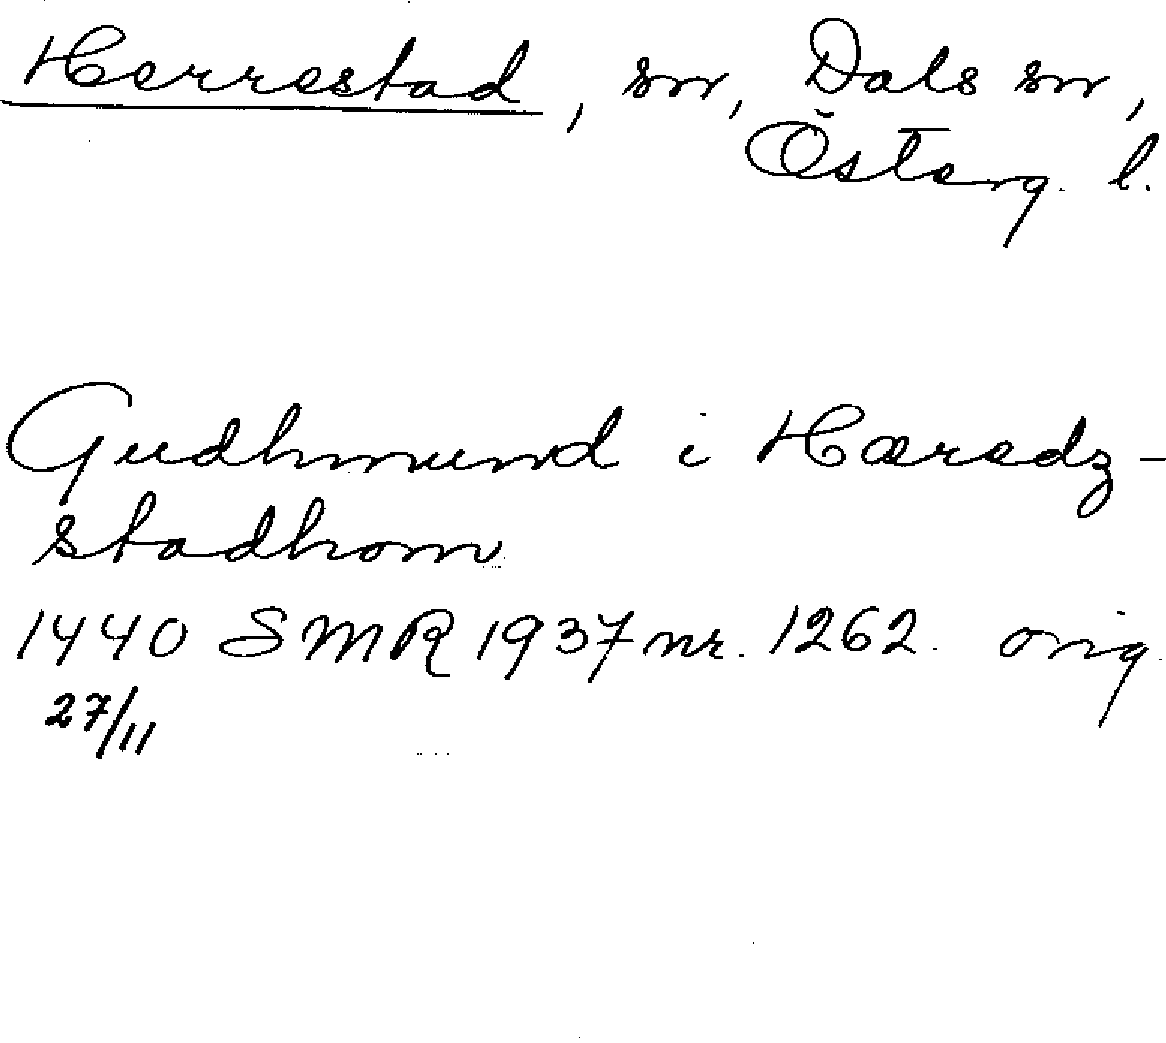 Herrestad, sn, Dals sn,
Österg. l.
Gudhmund i Hæredz-
stadhom
1440 SMR 1937 nr. 1262. orig.
27/11